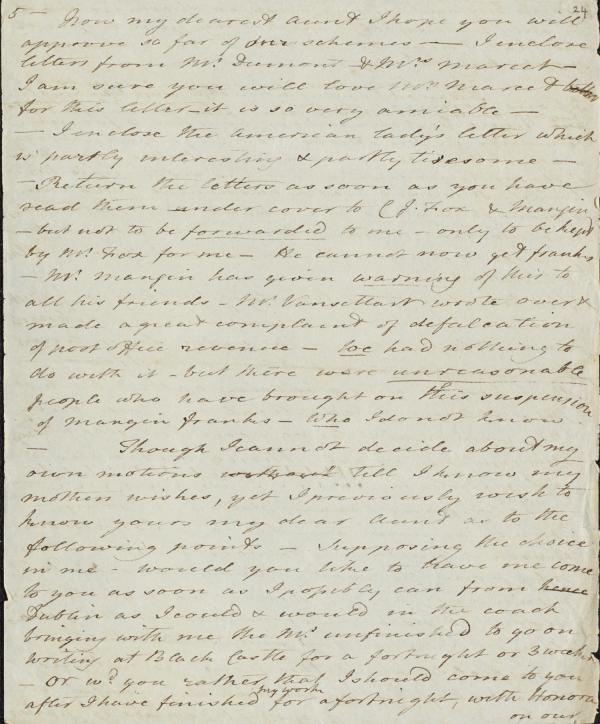 5 - Now my dearest aunt I hope you will 24
approve so far of our schemes — I enclose
letters from Mr. Dumont & Mrs Marcet —
I am sure you will love Mrs Marcet better
for this letter it is so very amiable —
— I enclose the American lady's letter which
is partly interesting & partly tiresome —
— Return the letters as soon as you have
read them under cover to C J. Fox & Mangin
- but not to be forwarded to me - only to be kept
by Mr. Fox for me — He cannot now get franks
— Mr. Mangin has given warning of this to
all his friends - Mr. Vansettart wrote over &
made a great complaint of defalcation
of post office revenue — We had nothing to
do with it - but there were unreasonable
people who have brought on this suspension
of Mangin franks — Who I do not know
— Though I cannot decide about my
own motions till I know my
mothers wishes, yet I previously wish to
know yours my dear Aunt as to the
following points — Supposing the choice
in me - would you like to have me come
to you as soon as I possibly can from hence
Dublin as I could & would in the coach
bringing with me the Ms. unfinished to go on
writing at Black Castle for a fortnight or 3 weeks
— Or wd. you rather that I should come to you
after I have finished my work for a fortnight, with Honora
on our